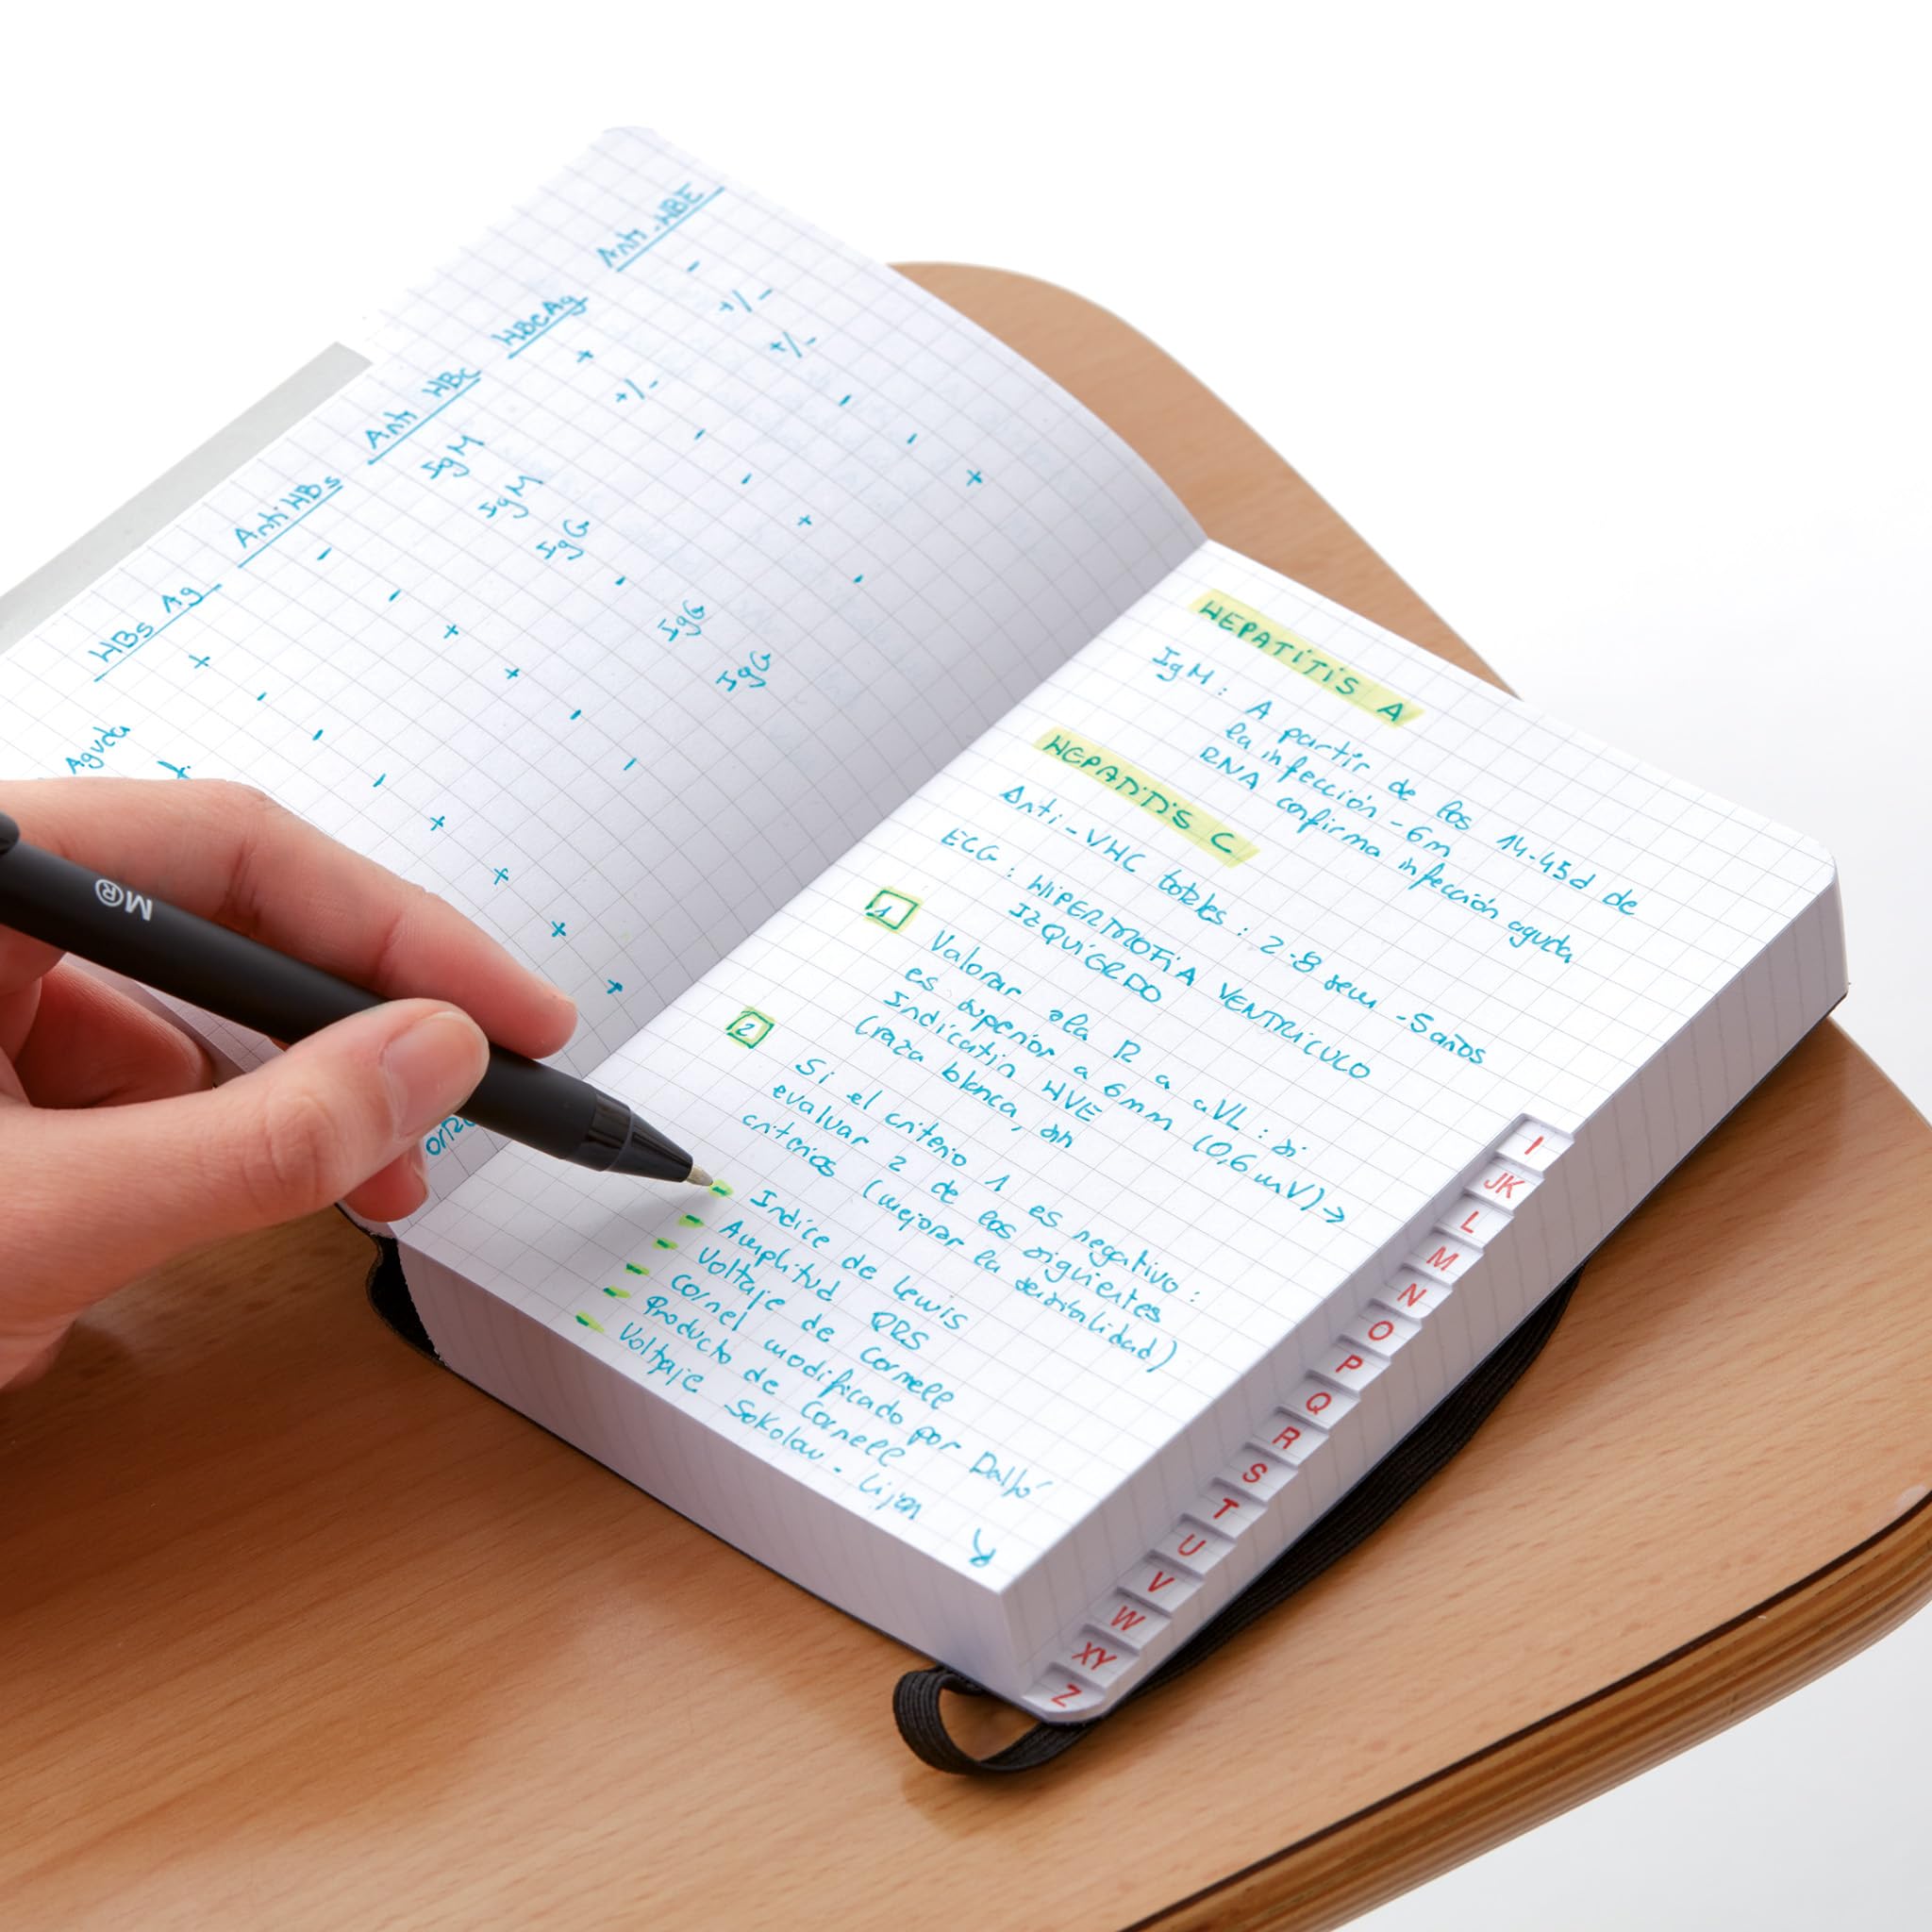 HBs Ag   Anti HBs   Anti HBc   HBcAg   Anti-HBE
Aguda
+ - IgM + -
- - IgM +/- +/-
- + IgG - +/-
- + - - -
+ - IgG + -
+ - IgG - +
+
+
HEPATITIS A
IgM: A partir de los 14-45d de
la infección - 6m
RNA confirma infección aguda
HEPATITIS C
Anti-VHC totales: 2-8 sem - 5 años
ECG: HIPERTROFIA VENTRICULO
IZQUIERDO
1 Valorar ola R a aVL: si
es superior a 6mm (0,6 mV) →
Indicatin HVE
(raza blanca,
2 Si el criterio 1 es negativo:
evaluar 2 de los siguientes
criterios (mejorar la sensibilidad)
- Indice de Lewis
- Amplitud QRS
- Voltaje de Cornell
- Cornel modificado por Dalfó
- Producto de Cornell
- Voltaje Sokolow-Lijon
I
JK
L
M
N
O
P
Q
R
S
T
U
V
W
XY
Z
M®